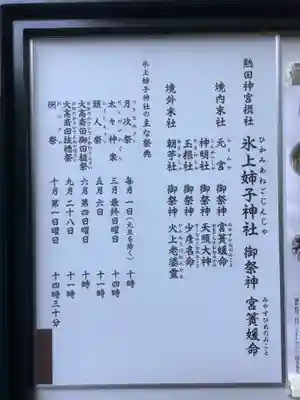 熱田神宮摂社
氷上姉子神社 御祭神 宮簀媛命
ひかみあねごじんじゃ みやすひめのみこと
境内末社 元宮 御祭神 宮簀媛命
神明社 御祭神 天照大神
玉根社 御祭神 少彦名命
境外末社 朝苧社 御祭神 火上老婆霊
氷上姉子神社の主な祭典
月次祭 毎月一日(元旦を除く) 十時
太々神楽 三月最終日曜日 十一時
頭人祭 五月六日 十四時
大高斎田御田植祭 六月第四日曜日 十時
大高斎田抜穂祭 九月二十八日 十一時
例祭 十月第一日曜日 十四時三十分